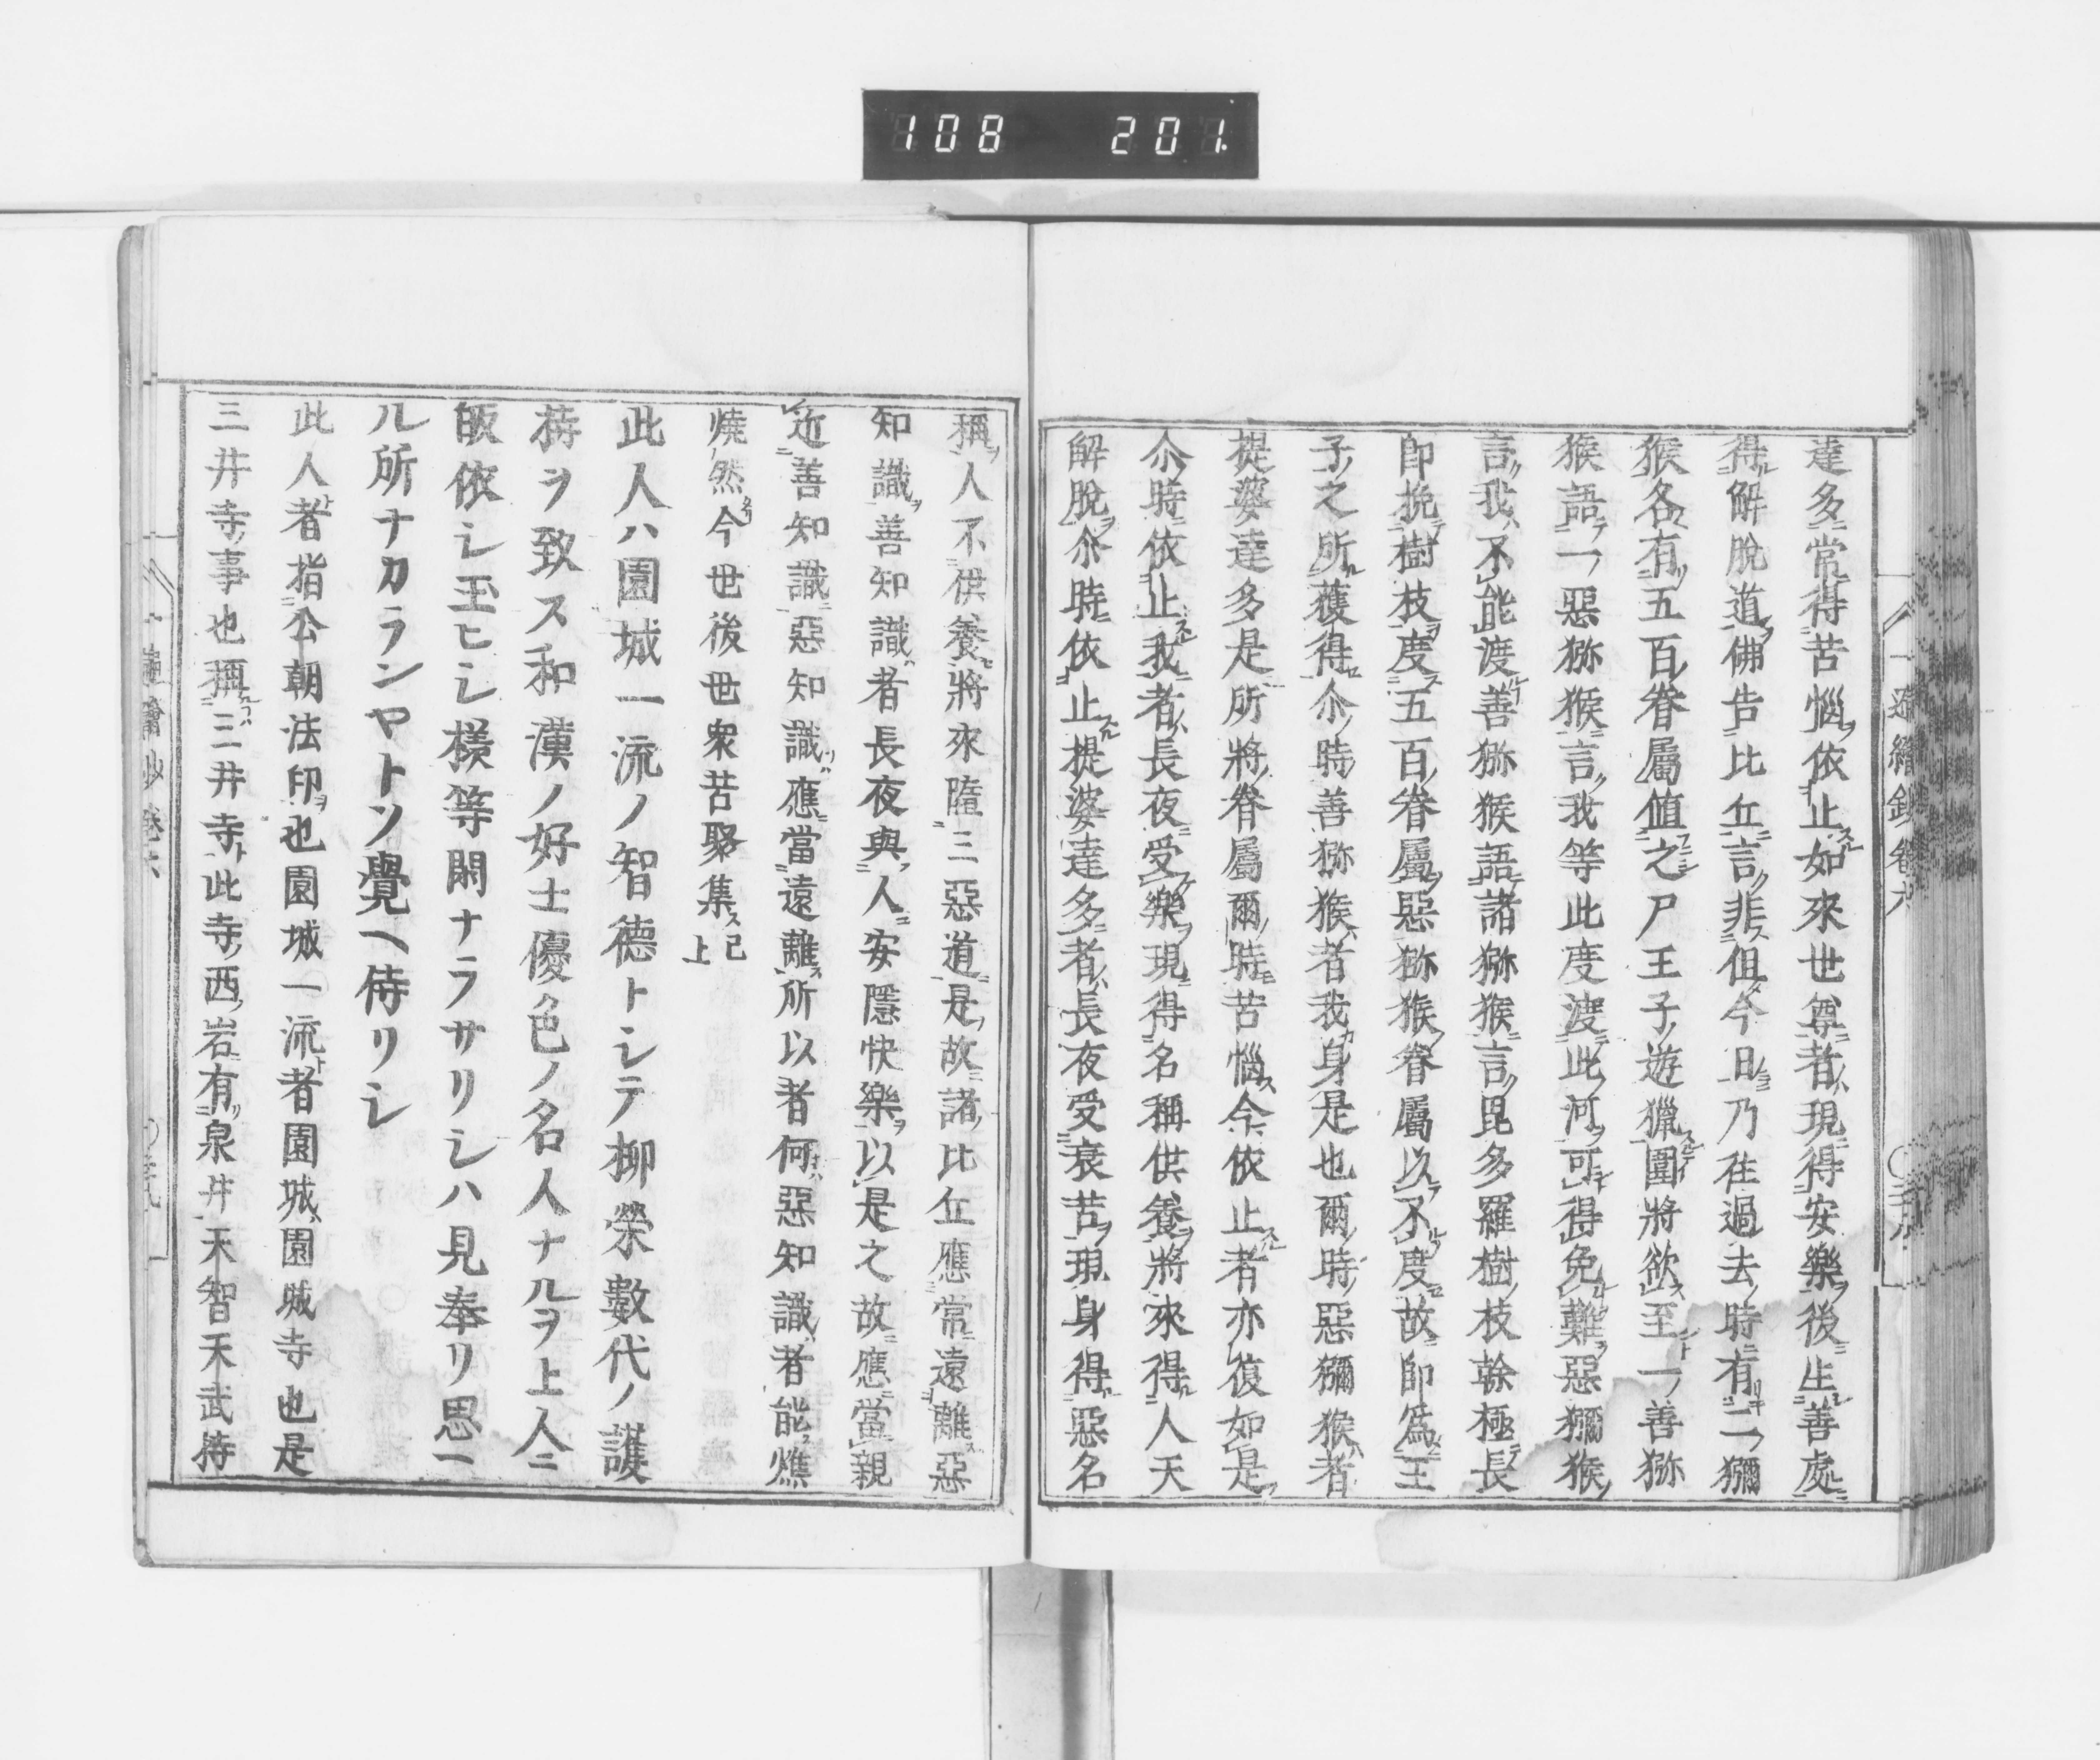 108 201
達多常得苦惱依止如來世尊者現得安樂後生善處
得解脫道佛告比丘言非但今日乃徃過去時有二獼
猴各有五百眷屬値之尸王子遊獵圍將欲至一善猕
猴語一惡猕猴言我等此度渡此河可得免難惡獼猴
言我不能渡善猕猴語諸猕猴言毘多羅樹枝幹極長
卽挽樹枝度五百眷屬惡猕猴眷屬以不度故卽爲王
子之所獲得尒時善猕猴者我身是也爾時惡獼猴者
提婆達多是所將眷屬爾時苦惱今依止者亦復如是
尒時依止我者長夜受樂現得名稱供養將來得人天
解脫尒時依止提婆達多者長夜受衰苦現身得惡名
稱人不供養將來墮三惡道是故諸比丘應常遠離惡
知識善知識者長夜與人安隱快樂以是之故應當親
近善知識惡知識應當遠離所以者何惡知識者能燋
燒然今世後世衆苦聚集已上
此人ハ園城一流ノ智德トシテ柳榮數代ノ護
持ヲ致ス和漢ノ好士優色ノ名人ナルヲ上人ニ
皈依シ玉ヒシ樣等閑ナラサリシハ見奉リ思一
ル所ナカランヤトソ覺ヘ侍リシ
此人者指公朝法印也園城一流者園城園城寺也是
三井寺事也稱三井寺此寺西岩有泉井天智天武待